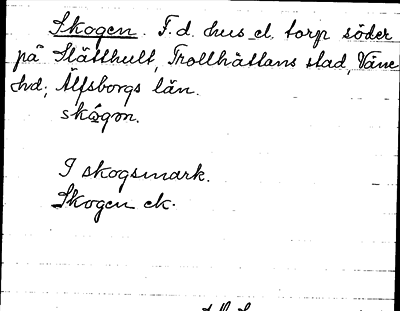 Skogen. F.d. hus el. torp söder
på Slätthult, Trollhättans stad, Väne
hd; Älfsborgs län.
skógon.
I skogsmark.
Skogen ek.